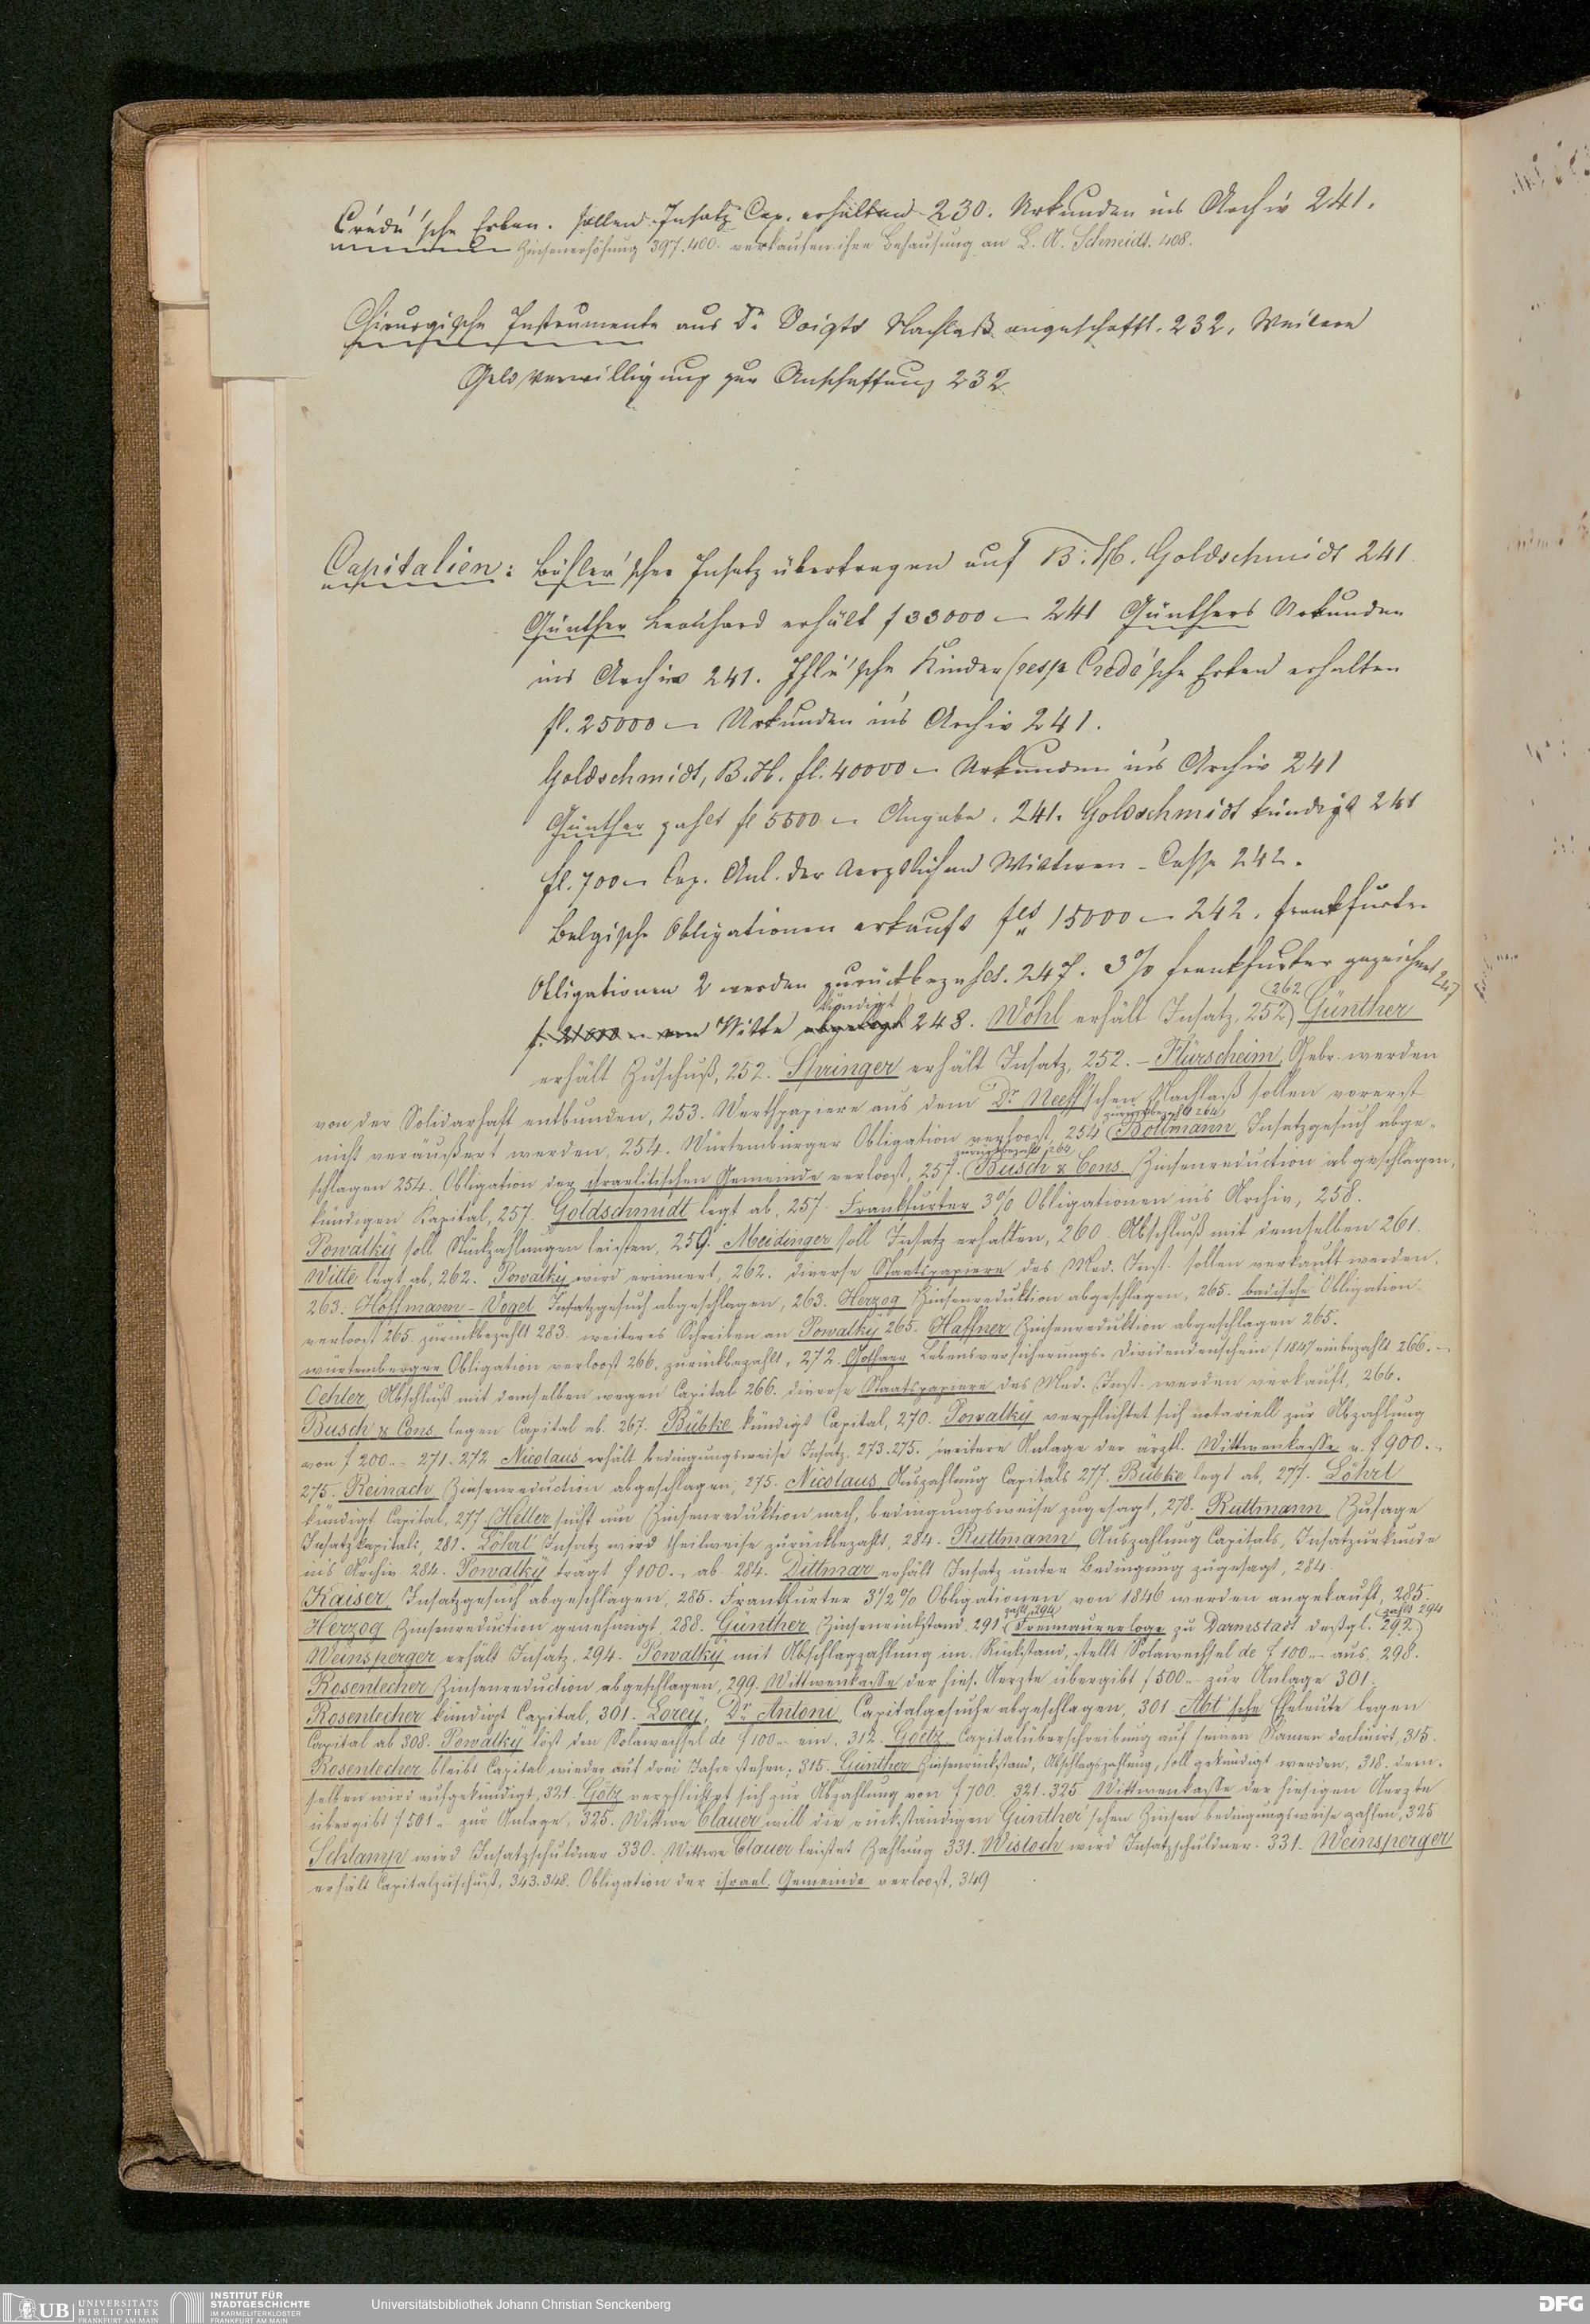 Crédé'sche Erben. sollen Insatz Cap. erhalten 230. Urkunden ins Archiv 241.
Zinsenerhöhung 397.400. verkaufen ihre Behausung an L. A. Schmidt. 408.
Chirurgische Instrumente aus Dr Voigts Nachlaß angeschafft. 232, Weitere
Geldverwilligung zur Anschaffung 232
Capitalien: Bühler'scher Insatz übertragen auf B. H. Goldschmidt 241
Günther Leonhard erhält f 33000 – 241 Günthers Urkunden
ins Archiv 241. Ihle'sche Kinder (resp Credé'sche Erben erhalten
fl. 25000 – Urkunden in's Archiv 241.
Goldschmidt, B. H. fl. 40000 – Urkunden in's Archiv 241
Günther zahlt fl 5500 – Angabe. 241. Goldschmidt kündigt 241
fl. 700 – Cap. Anl. der Aerztlichen Wittwen-Casse 242.
Belgische Obligationen erkauft 15000 – 242. Frankfurter
Obligationen 2 werden zurückbezahlt. 247. 3% Frankfurter gezeichnet 247
kündigt 262
Witte 248. Wohl erhält Insatz, 252) Günther
erhält Zuschuß, 252. Springer erhält Insatz, 252. – Flürscheim, Gebr. werden
von der Solidarhaft entbunden, 253. Werthpapiere aus dem Dr. Neeff'schen Nachlaß sollen vorerst
zurückbezahlt 264
nicht veräußert werden, 254. Würtemburger Obligation verloost, 254 (Bollmann, Insatzgesuch abge-
zurückbezahlt 264
schlagen 254. Obligation der israelitischen Gemeinde verloost, 257. (Busch & Cons. Zinsenreduction abgeschlagen,
kündigen Kapital, 257. Goldschmidt legt ab, 257. Frankfurter 3% Obligationen in's Archiv, 258.
Powalky soll Stückzahlungen leisten, 259. Meidinger soll Insatz erhalten, 260. Abschluß mit demselben 261.
Witte legt ab, 262. Powalky wird erinnert, 262. diverse Staatspapiere des Med. Inst. sollen verkauft werden,
263. Hoffmann-Vogel Insatzgesuch abgeschlagen, 263. Herzog Zinsenreduktion abgeschlagen, 265. badische Obligation
verloost 265. zurückbezahlt 283. weiteres Schreiben an Powalky 265. Haffner Zinsenreduktion abgeschlagen 265.
würtemberger Obligation verloost 266, zurückbezahlt, 272. Gothaer Lebensversicherungs-Dividendenschein f 1847 einbezahlt 266. –
Oehler, Abschluß mit demselben wegen Capital 266. diverse Staatspapiere des Med. Inst. werden verkauft, 266.
Busch & Cons legen Capital ab. 267. Bübke kündigt Capital, 270. Powalky verpflichtet sich notariell zur Abzahlung
von f 200.– 271.272 Nicolaus erhält bedingungsweise Insatz. 273.275. weitere Anlage der ärztl. Wittwenkasse v. f 900.–
275. Reinach, Zinsenreduction abgeschlagen, 275. Nicolaus, Auszahlung Capitals 277. Bübke legt ab, 277. Löhrl
kündigt Capital, 277. Heller sucht um Zinsenreduktion nach, bedingungsweise zugesagt, 278. Ruttmann, Zusage
Insatzkapital:, 281. Löhrl Insatz wird theilweise zurückbezahlt, 284. Ruttmann, Auszahlung Capitals, Insatzurkunde
ins Archiv. 284. Powalky trägt f 100.– ab. 284. Dittmar erhält Insatz unter Bedingung zugesagt, 284.
Kaiser, Insatzgesuch abgeschlagen, 285. Frankfurter 3 1/2% Obligationen von 1846 werden angekauft, 285.
zahlt 294 zahlt 294
Herzog Zinsenreduction genehmigt, 288. Günther, Zinsenrückstand, 291 (Freimaurerloge zu Darmstadt deßgl. 292)
Weinsperger erhält Insatz. 294. Powalky mit Abschlagzahlung im Rückstand, stellt Solawechsel de f 100.– aus. 298.
Rosenlecher Zinsenreduction abgeschlagen, 299. Wittwenkasse der hies. Aerzte übergibt f 500.– zur Anlage 301.
Rosenlecher kündigt Capital, 301. Lorey, Dr. Antoni, Capitalgesuche abgeschlagen, 301. Abt'sche Eheleute legen
Capital ab 308. Powalky löst den Solawechsel de f 100.– ein, 312. Goetz, Capitalüberschreibung auf seinen Namen declinirt, 315.
Rosenlecher bleibt Capital wieder auf drei Jahre stehen. 315. Günther Zinsenrückstand, Abschlagszahlung, soll gekündigt werden, 318. dem-
selben wird aufgekündigt, 321. Götz verpflichtet sich zur Abzahlung von f 700. 321.325 Wittwenkasse der hiesigen Aerzte
übergibt f 501.– zur Anlage, 325. Wittwe Clauer will die rückständigen Günther'schen Zinsen bedingungsweise zahlen, 325
Schlamp wird Insatzschuldner 330. Wittwe Clauer leistet Zahlung 331. Wisloch wird Insatzschuldner. 331. Weinsperger
erhält Capitalzuschuß, 343.348. Obligation der israel. Gemeinde verloost, 349
UB UNIVERSITÄTS
BIBLIOTHEK
FRANKFURT AM MAIN
INSTITUT FÜR
STADTGESCHICHTE
IM KARMELITERKLOSTER
FRANKFURT AM MAIN
Universitätsbibliothek Johann Christian Senckenberg
DFG